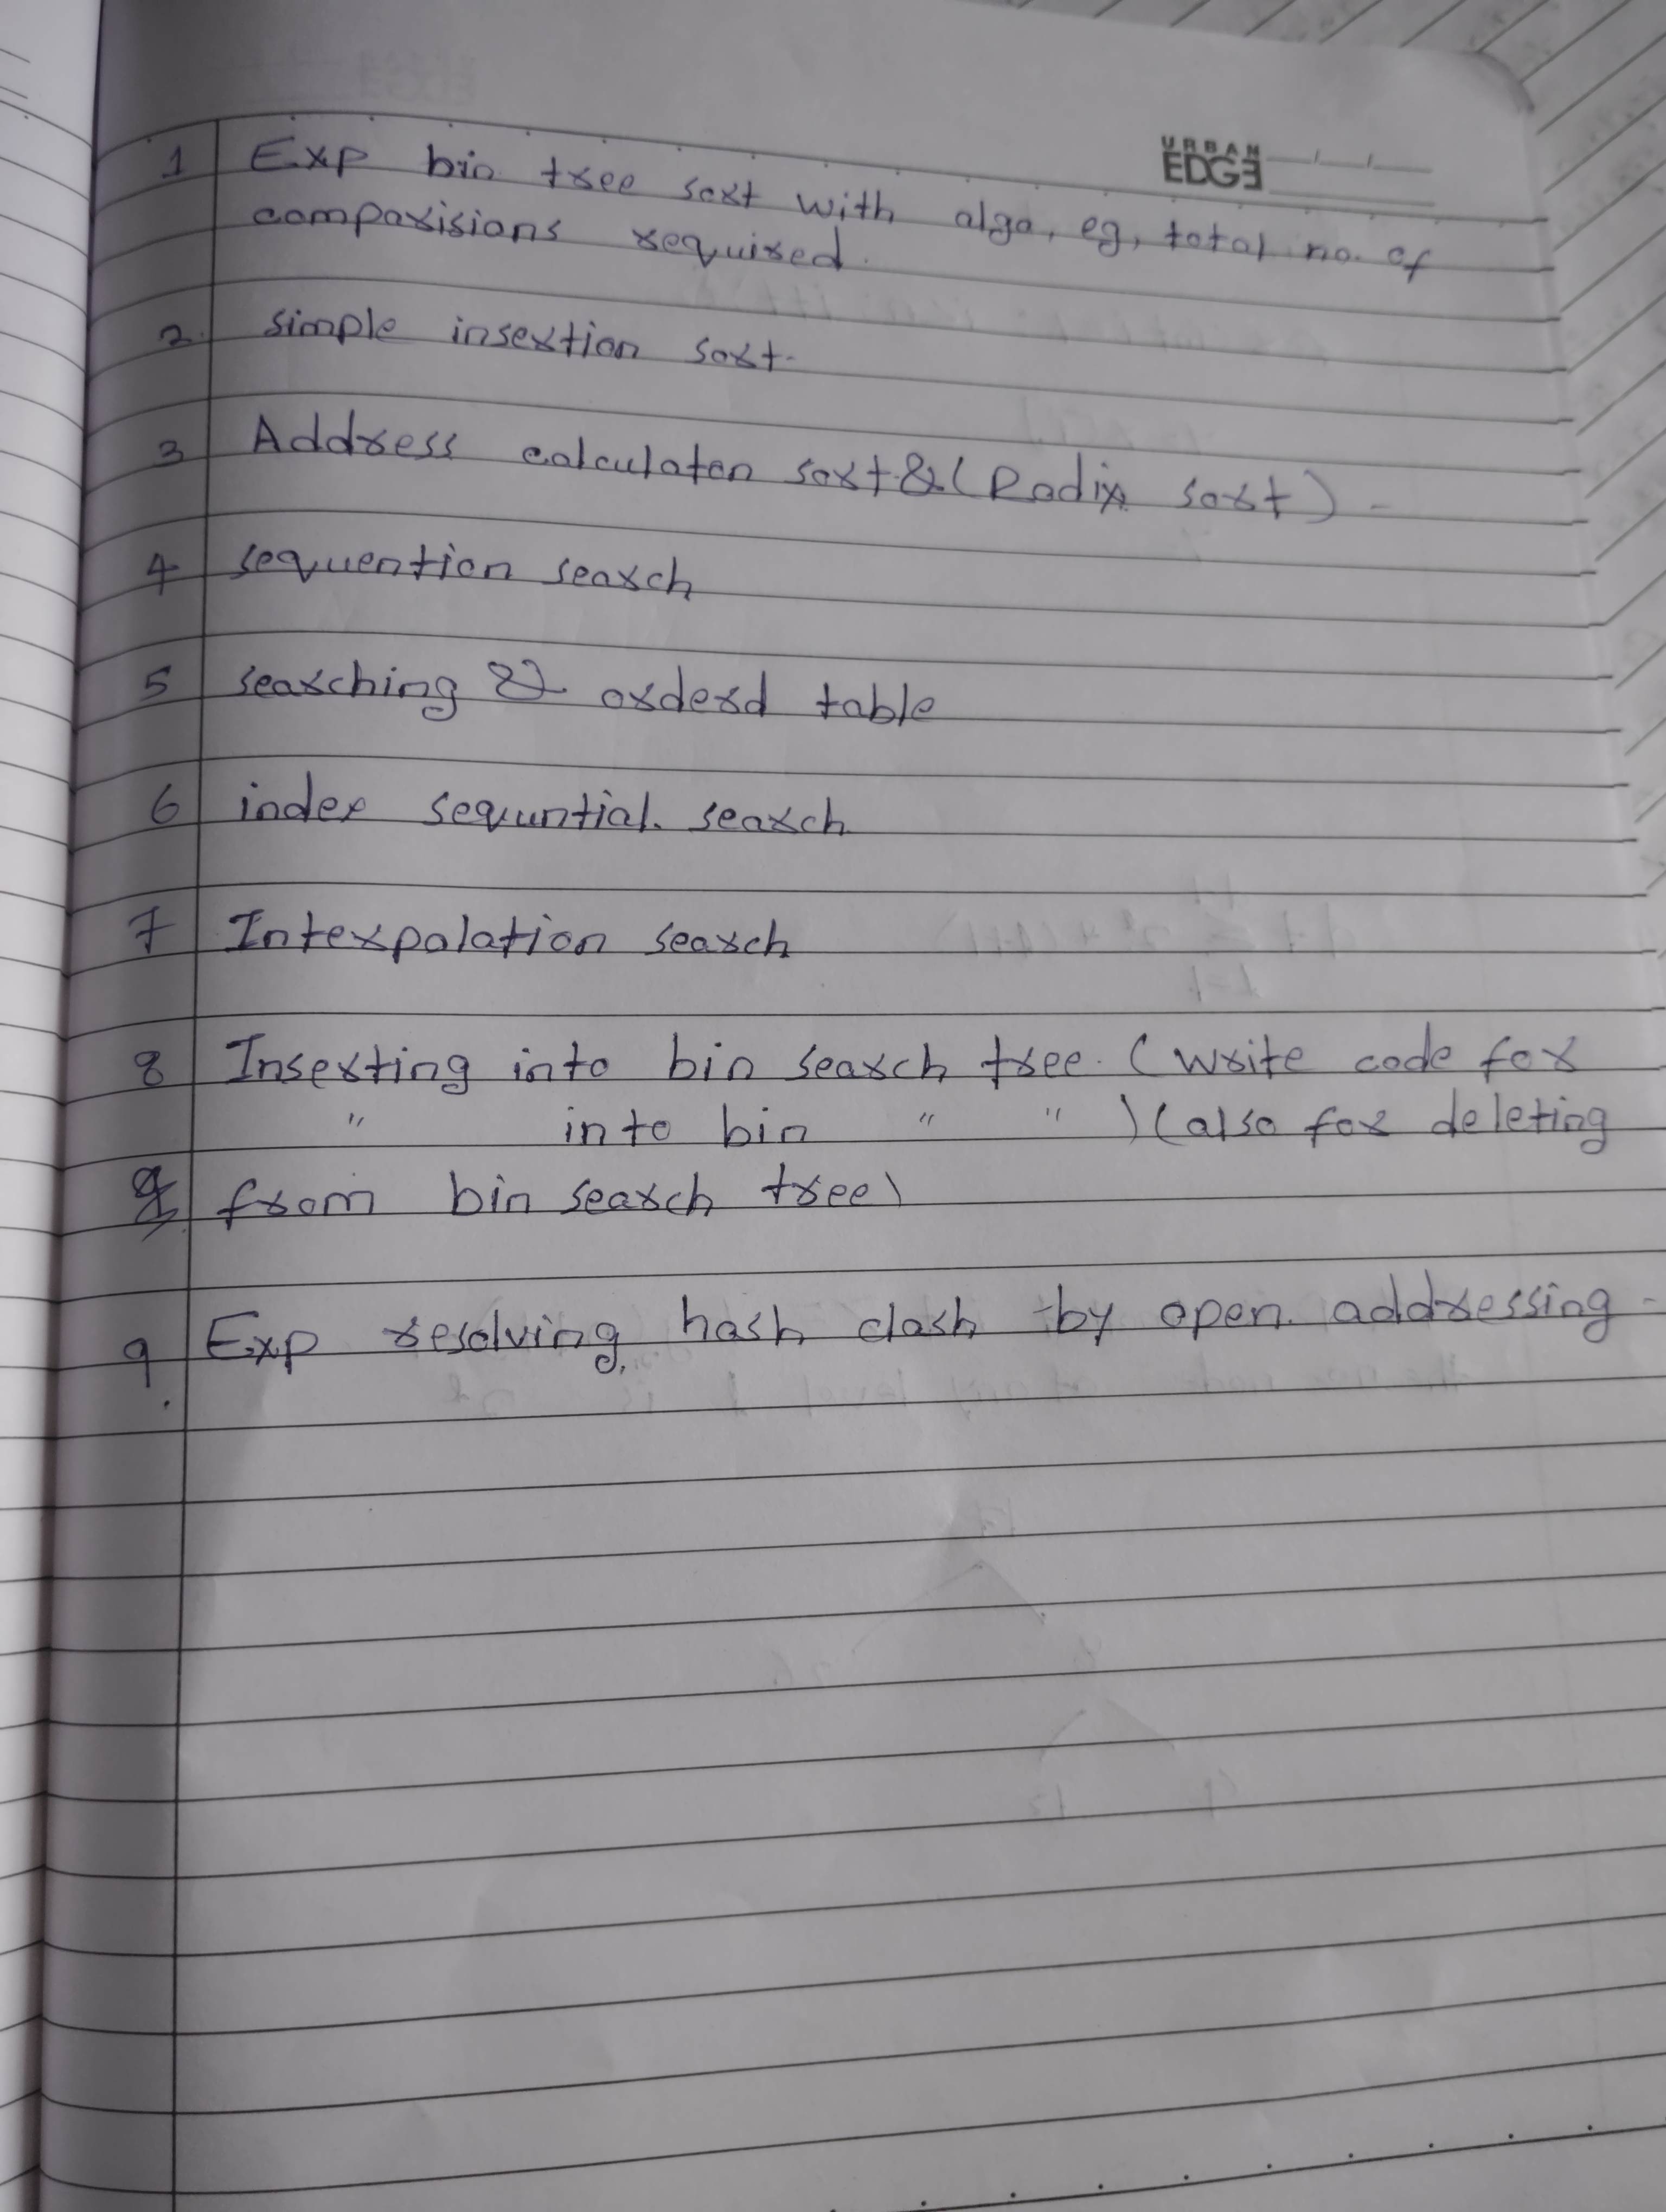 URBAN
EDGE
1 Exp bin tree sort with algo, eg, total no. of
comparisions required.
2. simple insertion sort.
3 Address calculaton sort & (Radix sort) -
4 sequention search
5 searching & orderd table
6 index sequntial. search
7 Interpolation search
8 Inserting into bin search tree. (write code for
" into bin " " ) (also for deleting
from bin search tree)
9. Exp resolving hash clash by open addressing -